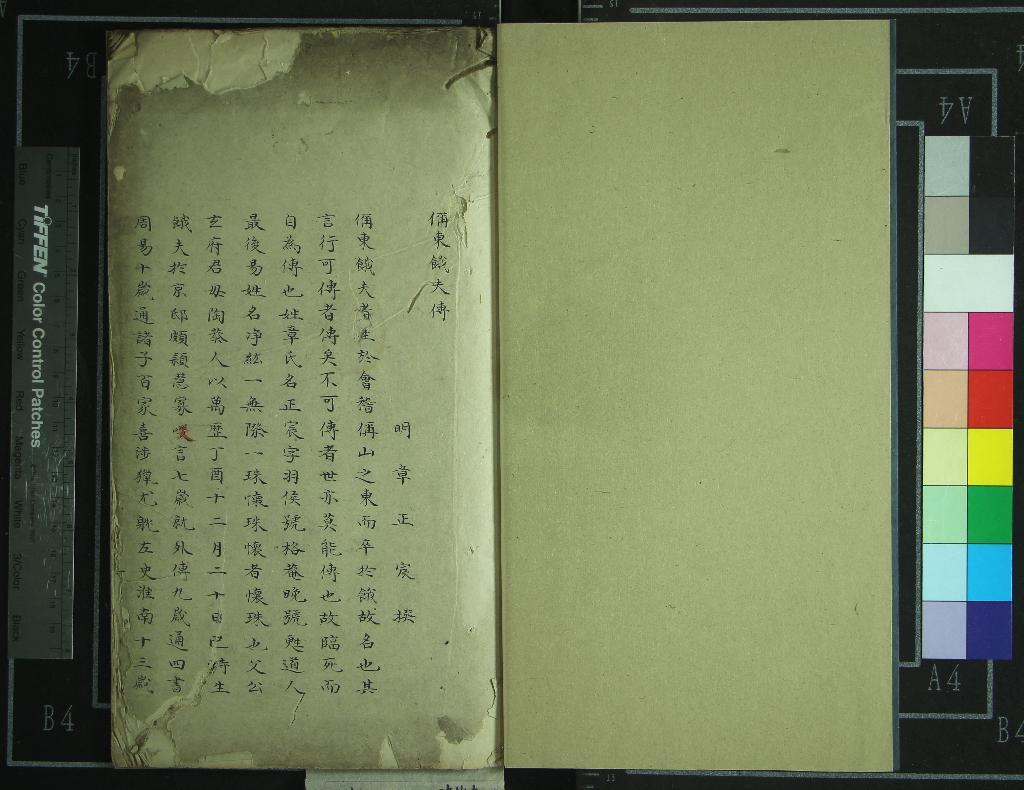 偁東餓夫傳
明章正宸撰
偁東餓夫者生於會稽偁山之東而卒於餓故名也其
言行可傳者傳矣不可傳者世亦莫能傳也故臨死而
自為傳也姓章氏名正宸字羽侯號格菴晚號甦道人
最後易姓名净紘一無際一珠懷珠懷者懷珠也父公
玄府君母陶恭人以萬歷丁酉十二月二十日巳時生
餓夫於京邸頗穎慧寡言七歲就外傅九歲通四書
周易十歲通諸子百家喜涉獵尤躭左史淮南十三歲
B4
A4
A4
B4
TIFFEN Color Control Patches
Blue Cyan Green Yellow Red Magenta White 3/Color Black